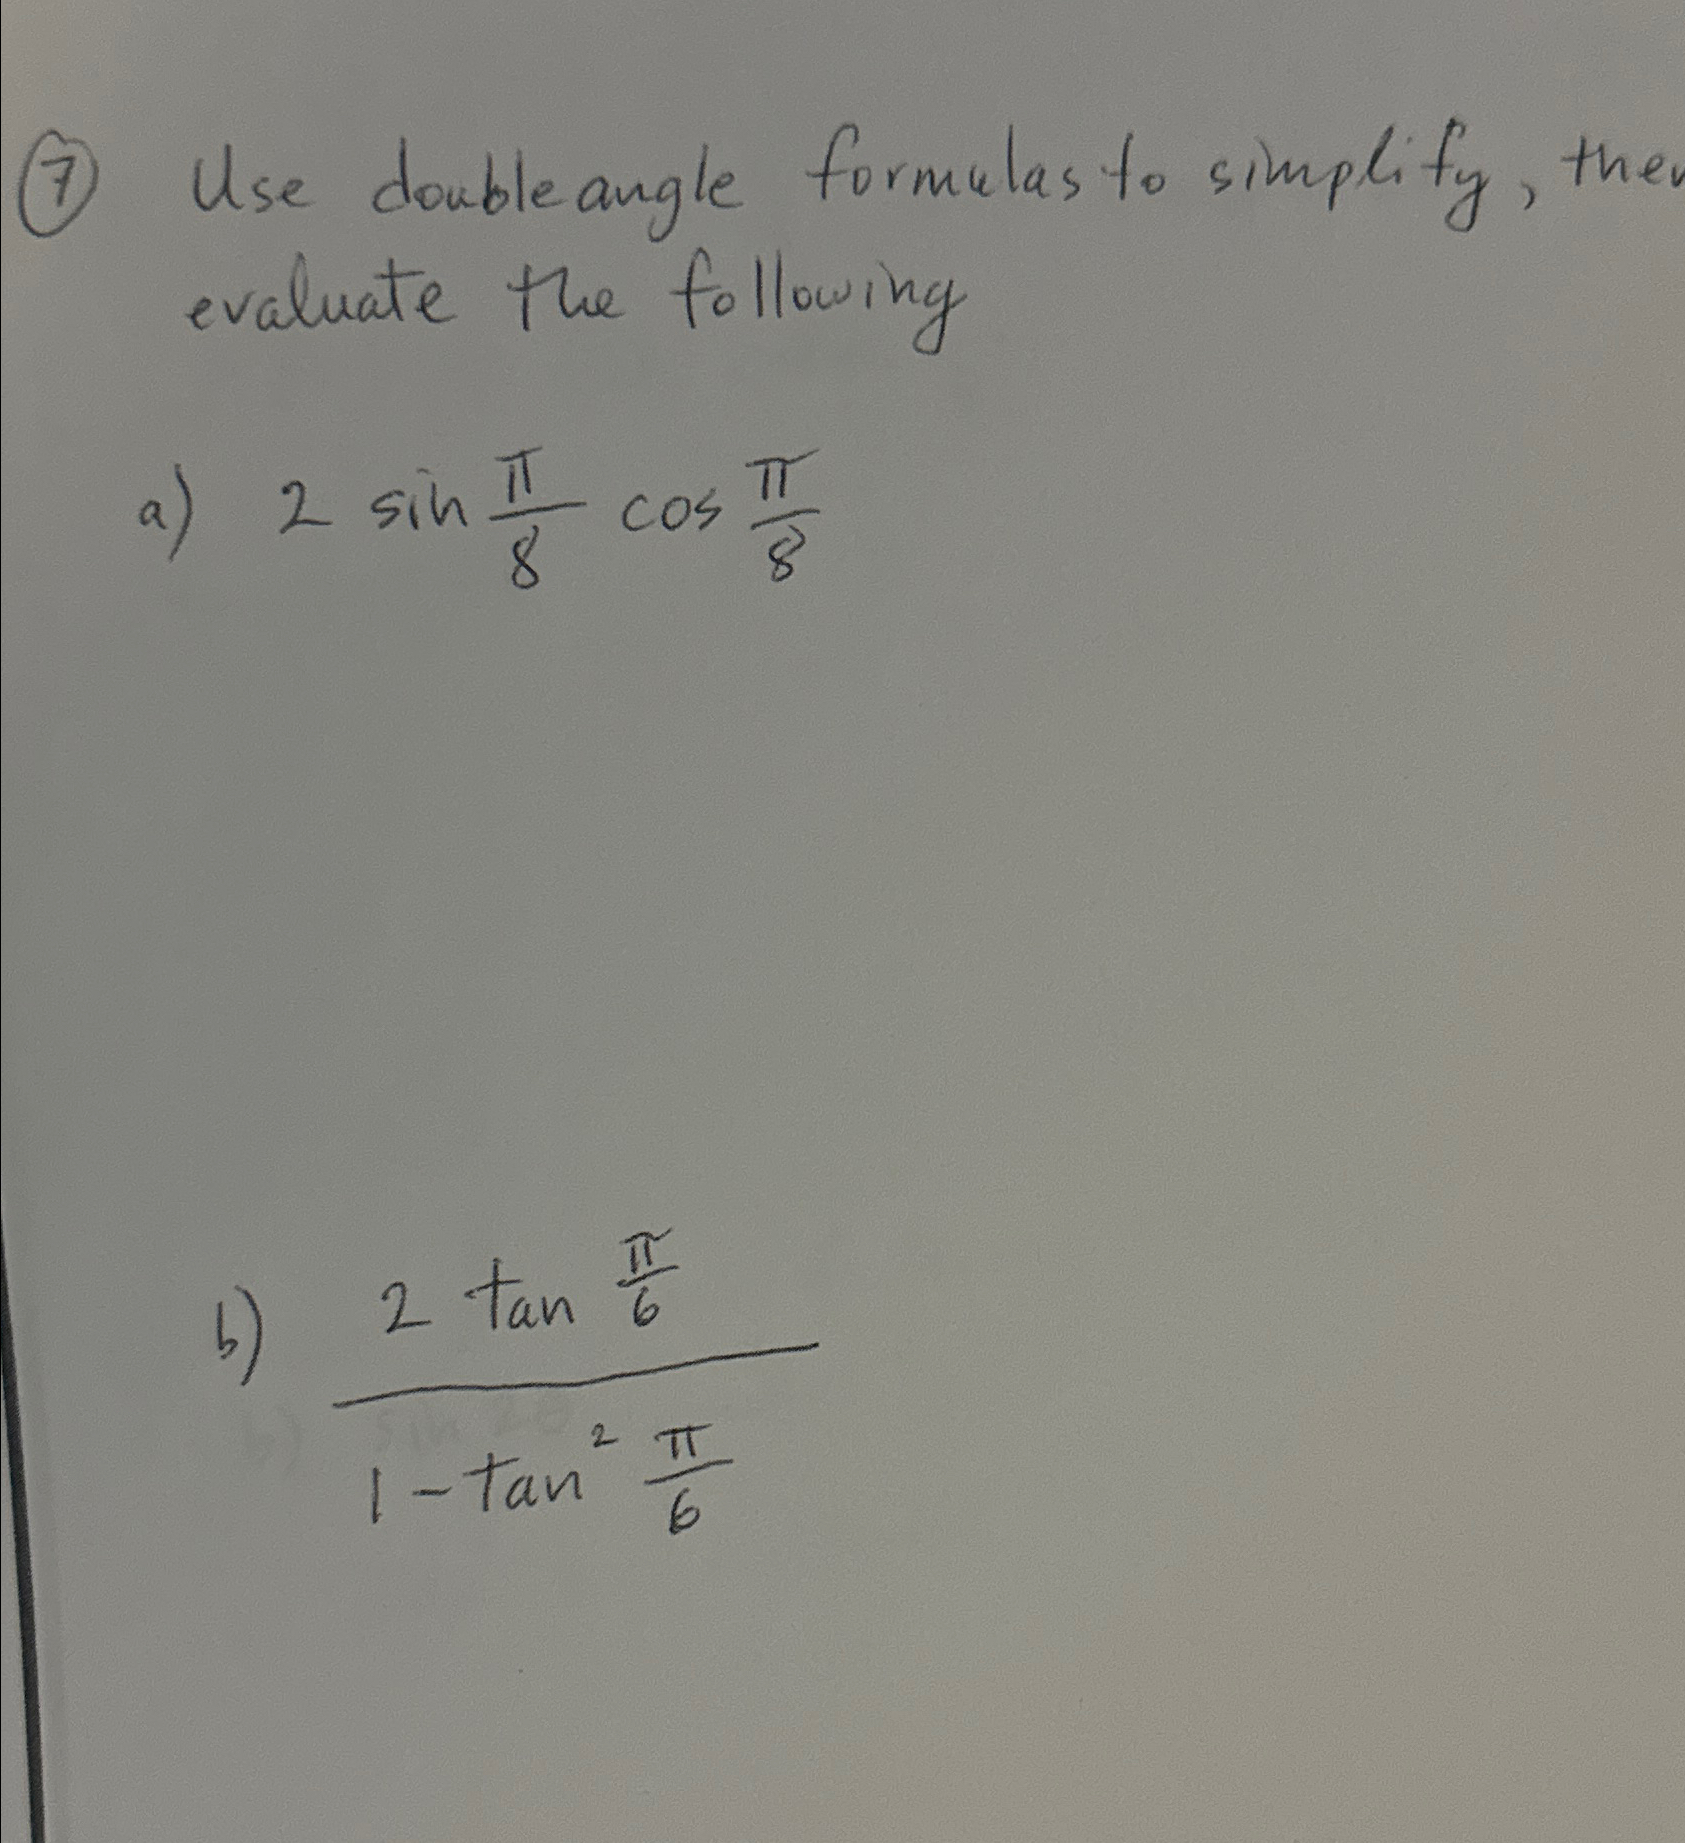 ⑦ Use double angle formulas to simplify, then
evaluate the following
a) 2 sin π/8 cos π/8
b) 2 tan π/6
1 - tan² π/6